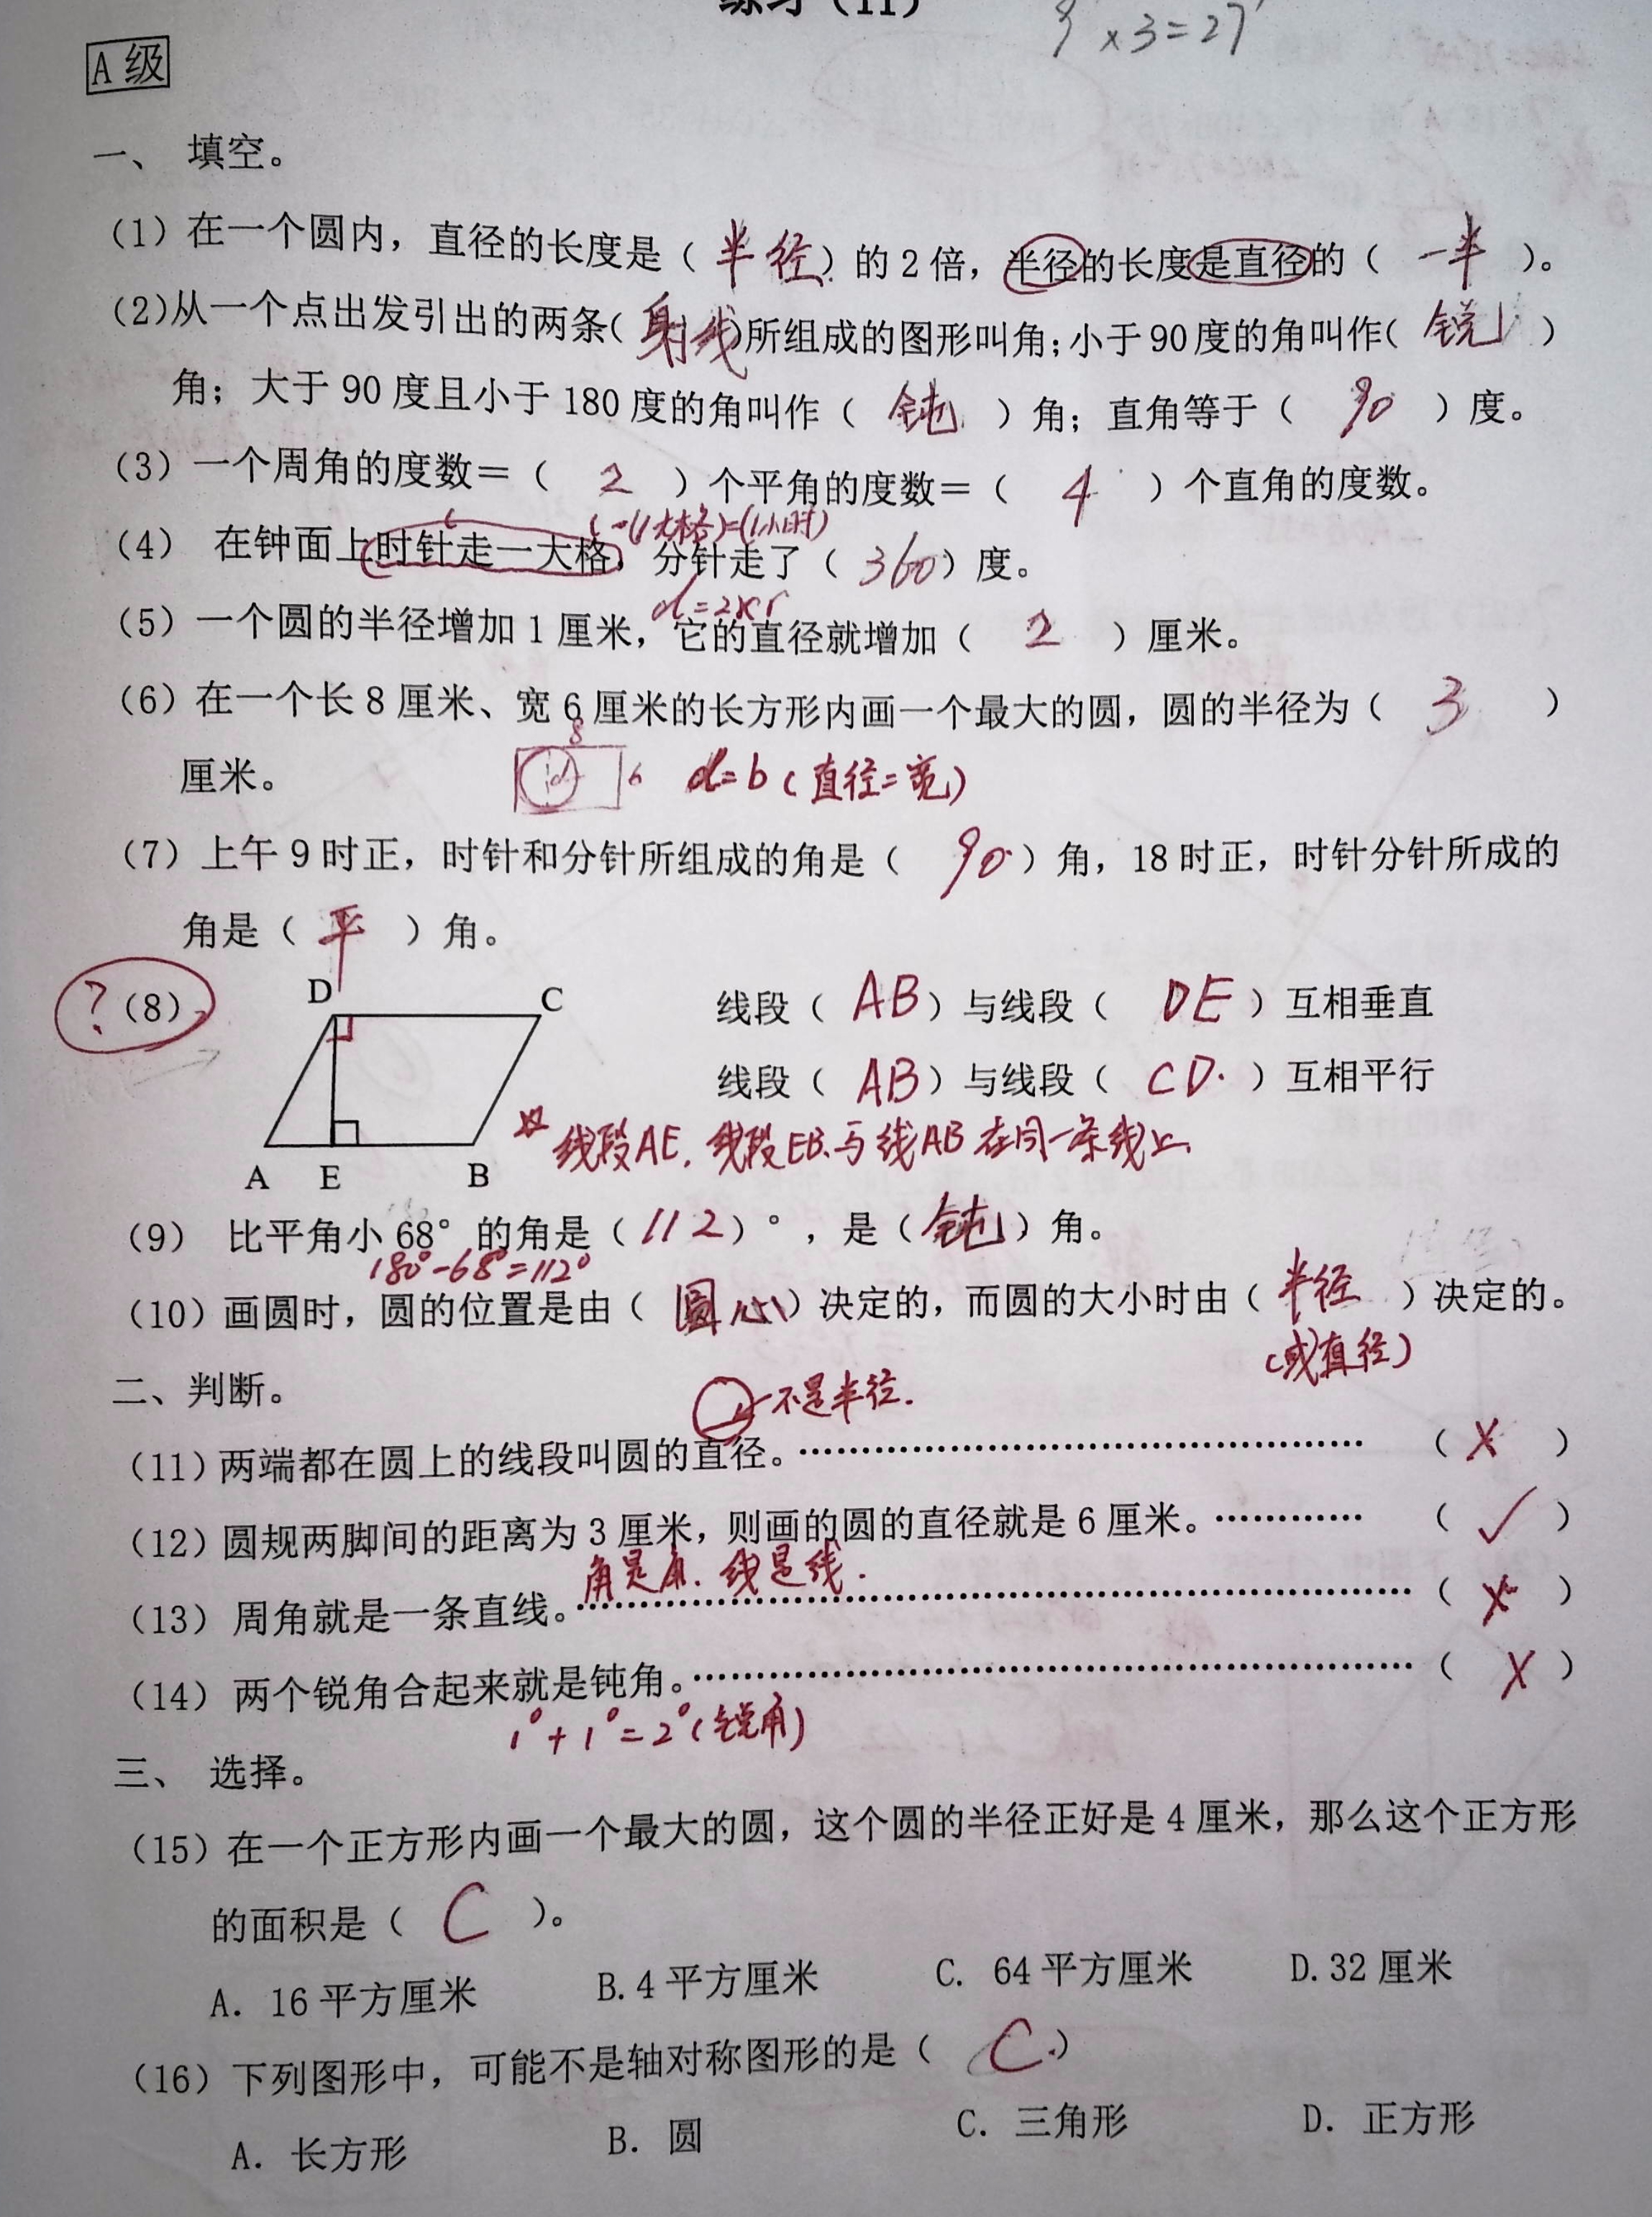 练习（11）
9 ×3=27
A 级
一、 填空。
（1）在一个圆内，直径的长度是（ 半径 ）的 2 倍，半径的长度是直径的（ 一半 ）。
（2）从一个点出发引出的两条（ 射线 ）所组成的图形叫角；小于 90 度的角叫作（ 锐 ）
角；大于 90 度且小于 180 度的角叫作（ 钝 ）角；直角等于（ 90 ）度。
（3）一个周角的度数＝（ 2 ）个平角的度数＝（ 4 ）个直角的度数。
(一大格)=(1小时)
（4） 在钟面上时针走一大格，分针走了（ 360 ）度。
d=2×r
（5）一个圆的半径增加 1 厘米，它的直径就增加（ 2 ）厘米。
（6）在一个长 8 厘米、宽 6 厘米的长方形内画一个最大的圆，圆的半径为（ 3 ）
厘米。
8
d 6 d=b（直径=宽）
（7）上午 9 时正，时针和分针所组成的角是（ 90 ）角，18 时正，时针分针所成的
角是（ 平 ）角。
？（8）
D C
A E B
线段（ AB ）与线段（ DE ）互相垂直
线段（ AB ）与线段（ CD. ）互相平行
线段AE. 线段EB.与线AB 在同一条线上.
（9） 比平角小 68° 的角是（ 112 ）°，是（ 钝 ）角。
180°-68°=112°
（10）画圆时，圆的位置是由（ 圆心 ）决定的，而圆的大小时由（ 半径 ）决定的。
（或直径）
二、判断。
不是半径.
（11）两端都在圆上的线段叫圆的直径。…………………………………………（ × ）
（12）圆规两脚间的距离为 3 厘米，则画的圆的直径就是 6 厘米。…………（ ✓ ）
角是角. 线是线.
（13） 周角就是一条直线。………………………………………………………（ × ）
（14） 两个锐角合起来就是钝角。………………………………………………（ × ）
1°+1°=2°（锐角）
三、 选择。
（15）在一个正方形内画一个最大的圆，这个圆的半径正好是 4 厘米，那么这个正方形
的面积是（ C ）。
A. 16 平方厘米 B. 4 平方厘米 C. 64 平方厘米 D. 32 厘米
（16）下列图形中，可能不是轴对称图形的是（ C. ）
A. 长方形 B. 圆 C. 三角形 D. 正方形